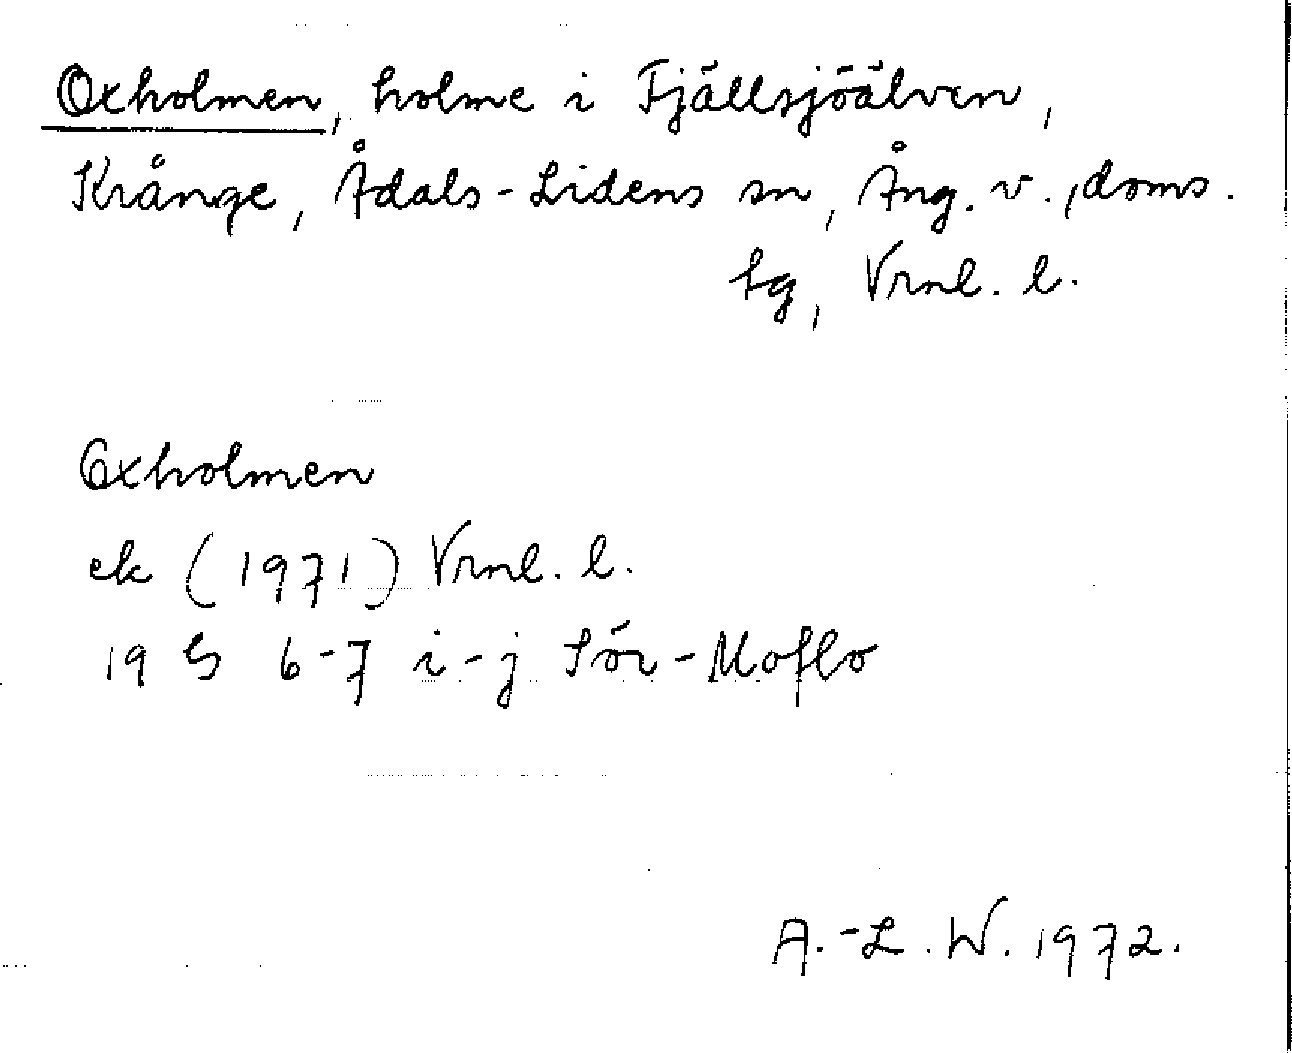 Oxholmen, holme i Fjällsjöälven,
Krånge, Ådals-Lidens sn, Ång. v., doms.
sg, Vrnl. l.
Oxholmen
ek (1971) Vrnl. l.
19 G 6-7 i-j Sör-Moflo
A.-L. W. 1972.